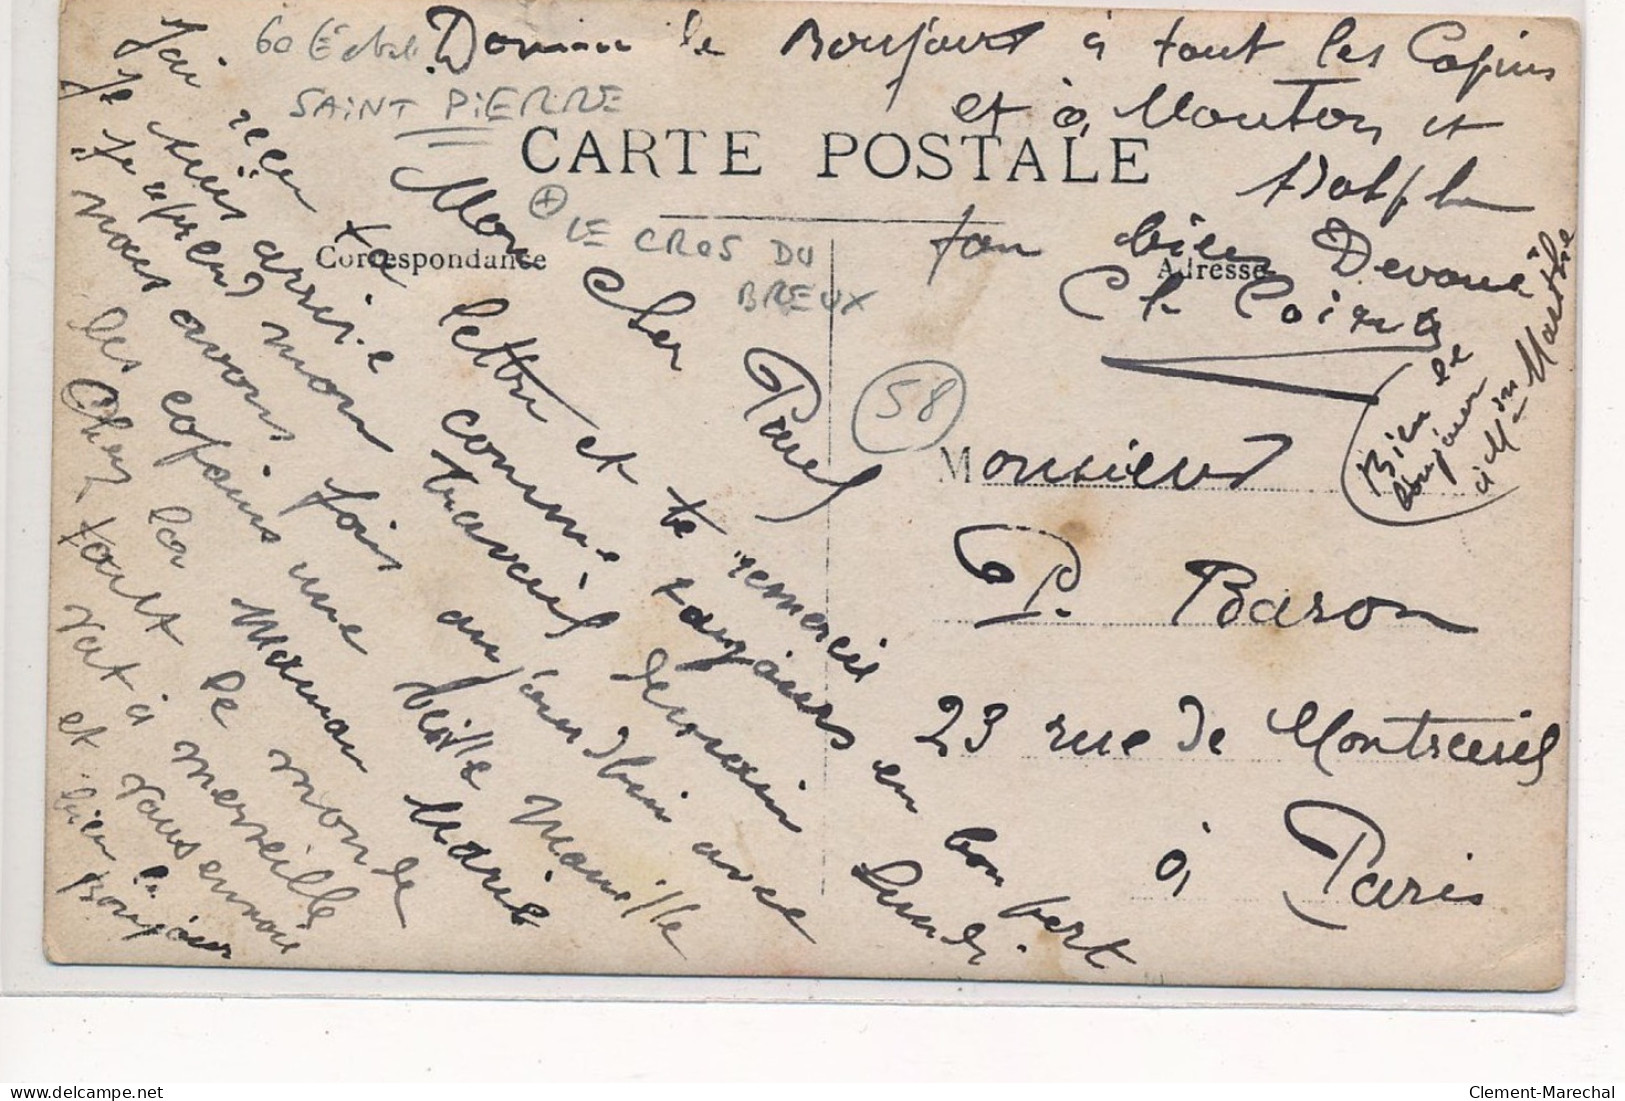 60
SAINT PIERRE
CARTE POSTALE
LE CROS DU
BREUX
Correspondance
Adresse
58
Mon Cher Paul
J'ai reçu ta lettre et te remercie
Je suis arrivé comme toujours en bon port
Je reprend mon travail demain Lundi.
nous avons fais aujourd'hui avec
les copains une belle Manille
Chez la Maman Marie
tout le monde
vat à merveille
et vous envoie
bien le Bonjour
le Bonjour à tout les Copins
et à Mouton et
Adolphe
ton bien Devoué
Ch
Bien le
Bonjour
à Mme Marthe
Monsieur
P. Baron
23 rue de Montreuil
à Paris
Clement-Marechal